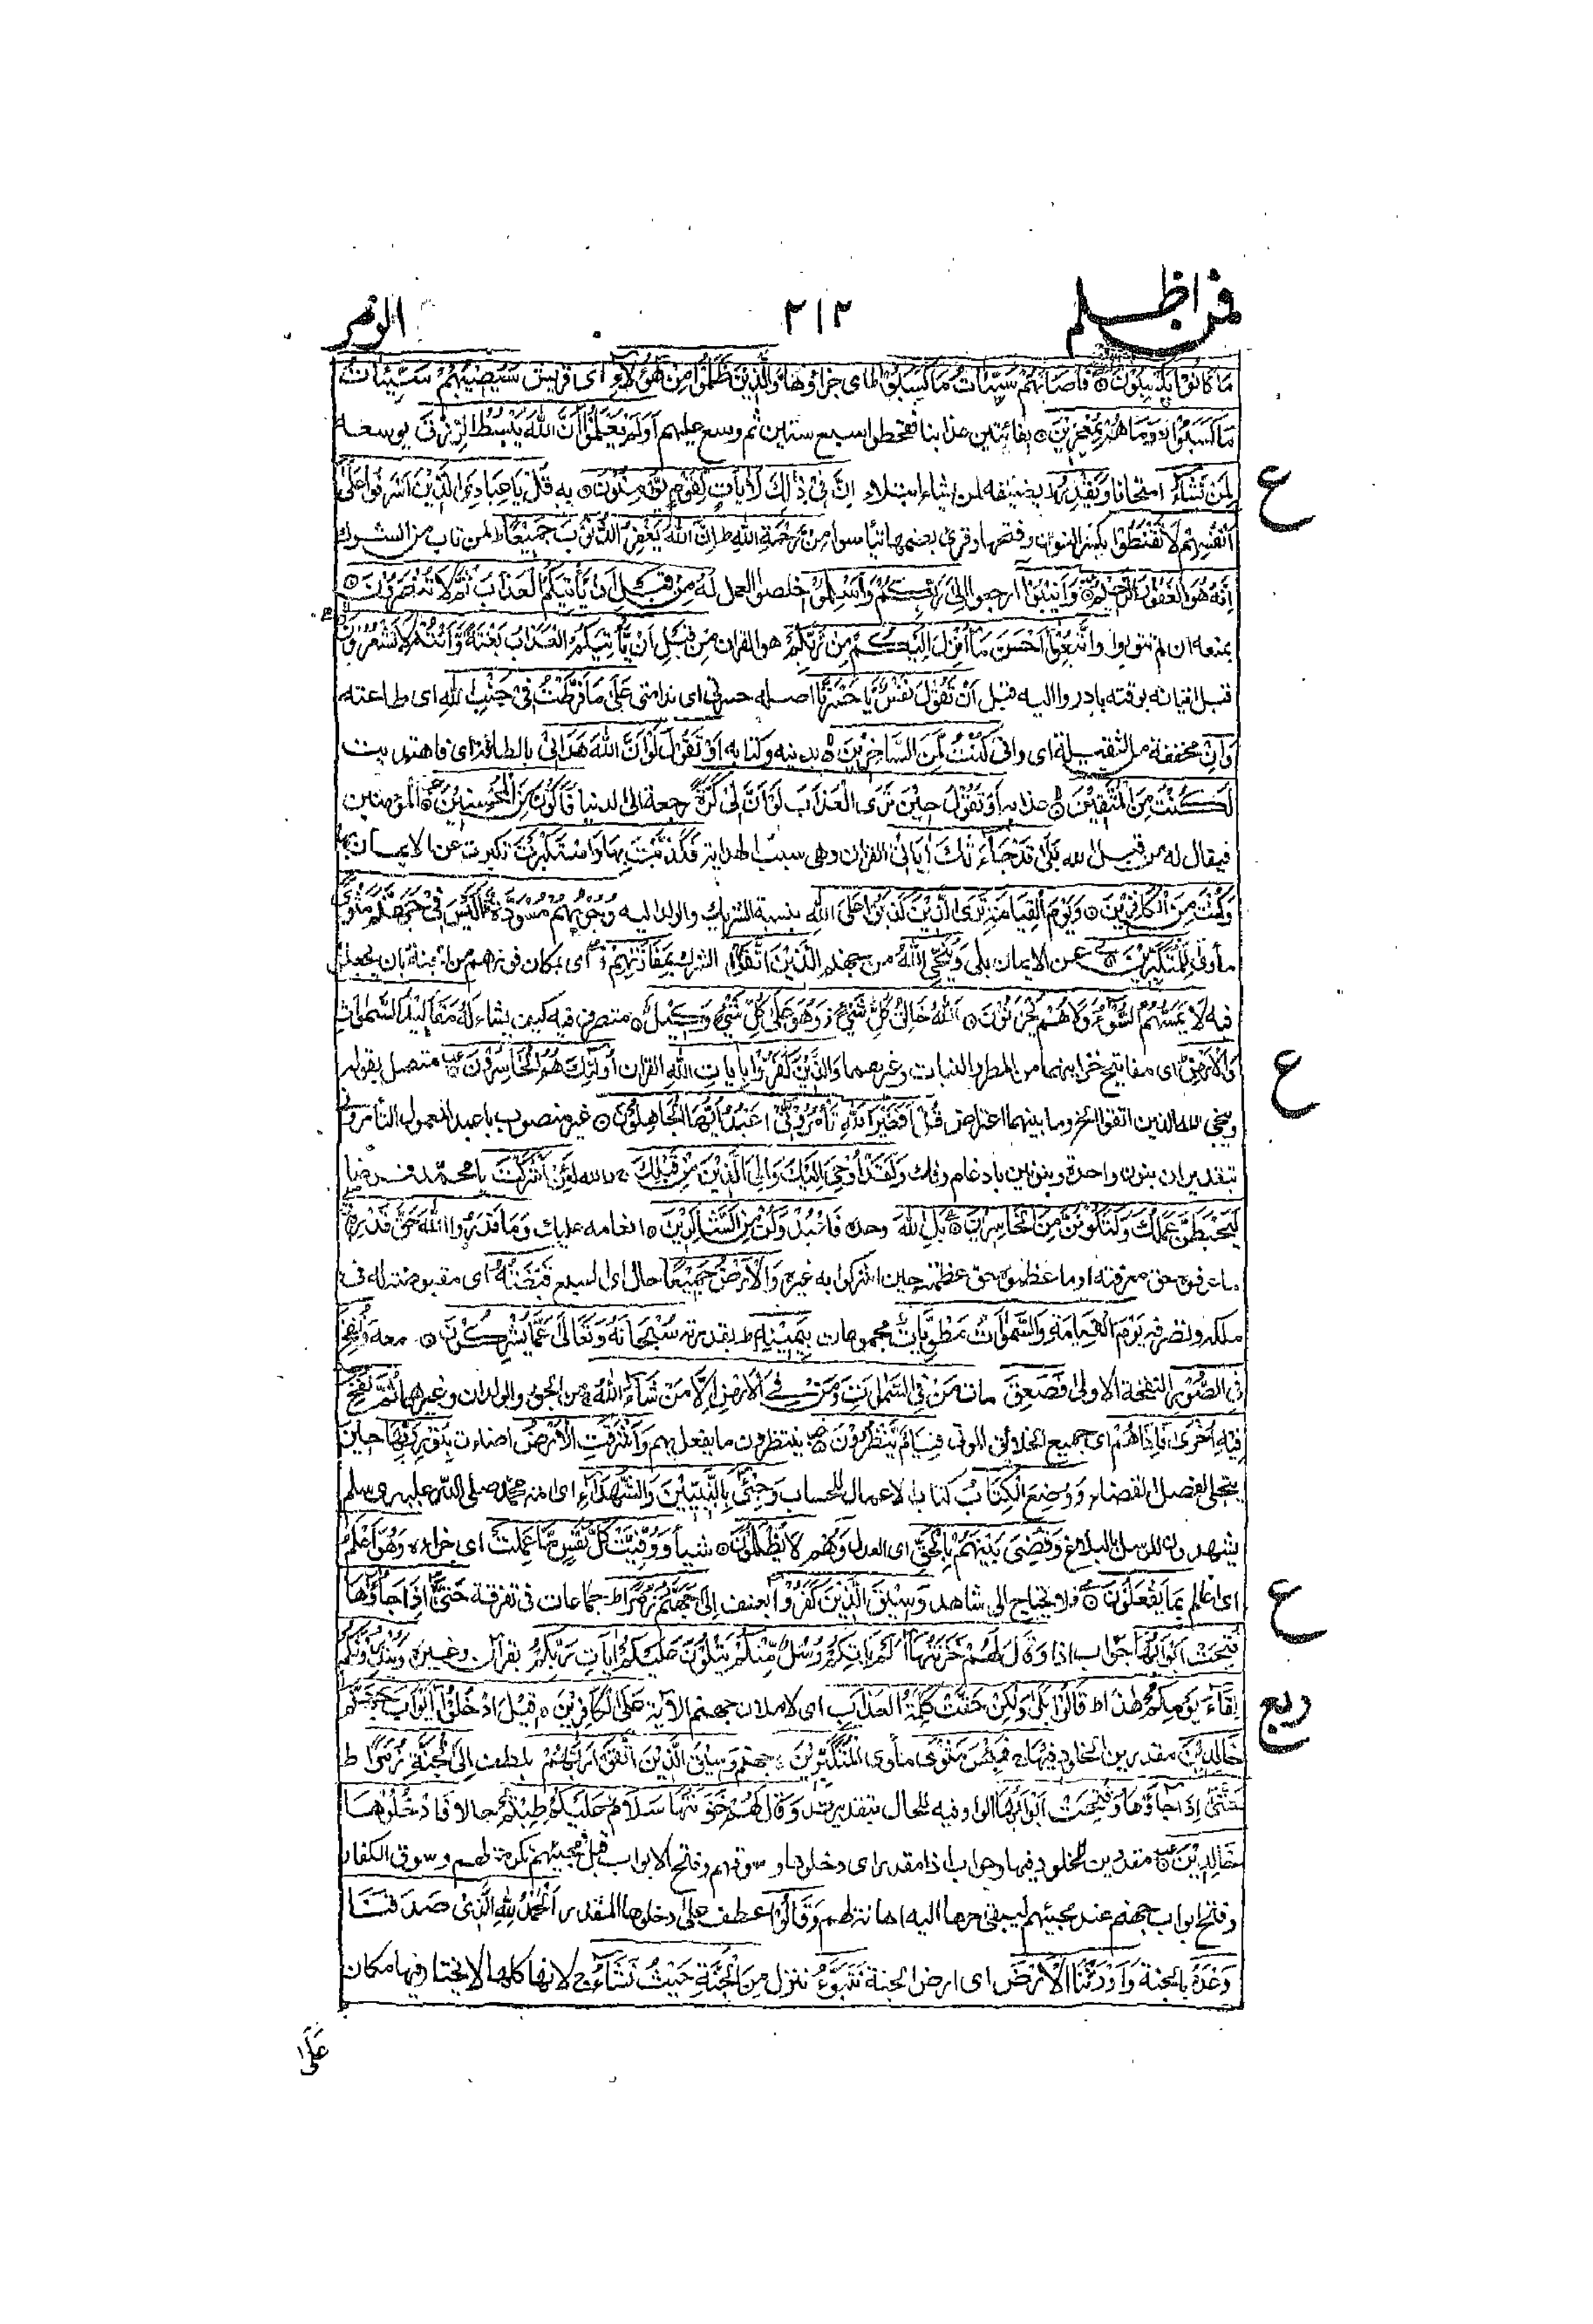 فمن اظلم ٢١٢ الزمر
مَا كَانُوْا يَكْسِبُوْنَ ۞ فَاَصَابَهُمْ سَيِّاٰتُ مَا كَسَبُوْا ط اى جزاؤها وَالَّذِيْنَ ظَلَمُوْا مِنْ هٰٓؤُلَآءِ اى قريش سَيُصِيْبُهُمْ سَيِّئَاتُ
مَا كَسَبُوْا وَمَا هُمْ بِمُعْجِزِيْنَ ۞ بفائتين عذابنا فقحطوا سبع سنين ثم وسع عليهم اَوَلَمْ يَعْلَمُوْٓا اَنَّ اللّٰهَ يَبْسُطُ الرِّزْقَ يوسعه
لِمَنْ يَّشَآءُ امتحانا وَيَقْدِرُ يضيقه لمن يشاء ابتلاء اِنَّ فِىْ ذٰلِكَ لَاٰيَاتٍ لِّقَوْمٍ يُّؤْمِنُوْنَ ۞ به قُلْ يَا عِبَادِىَ الَّذِيْنَ اَسْرَفُوْا عَلٰٓى
اَنْفُسِهِمْ لَا تَقْنَطُوْا بكسر النون وفتحها وقرئ بضمها تيأسوا مِنْ رَّحْمَةِ اللّٰهِ ط اِنَّ اللّٰهَ يَغْفِرُ الذُّنُوْبَ جَمِيْعًا ط لمن تاب من الشرك
اِنَّهٗ هُوَ الْغَفُوْرُ الرَّحِيْمُ ۞ وَاَنِيْبُوْٓا ارجعوا اِلٰى رَبِّكُمْ وَاَسْلِمُوْا اخلصوا العمل لَهٗ مِنْ قَبْلِ اَنْ يَّأْتِيَكُمُ الْعَذَابُ ثُمَّ لَا تُنْصَرُوْنَ ۞
بمنعه ان لم تتوبوا وَاتَّبِعُوْٓا اَحْسَنَ مَآ اُنْزِلَ اِلَيْكُمْ مِنْ رَّبِّكُمْ هو القران مِنْ قَبْلِ اَنْ يَّأْتِيَكُمُ الْعَذَابُ بَغْتَةً وَّاَنْتُمْ لَا تَشْعُرُوْنَ
قبل اتيانه بوقته بادروا اليه قبل اَنْ تَقُوْلَ نَفْسٌ يَّا حَسْرَتٰٓى اصله حسرتى اى ندامتى عَلٰى مَا فَرَّطْتُ فِىْ جَنْبِ اللّٰهِ اى طاعته
وَاِنْ مخففة من الثقيلة اى وانى كُنْتُ لَمِنَ السَّاخِرِيْنَ ۞ بدينه وكتابه اَوْ تَقُوْلَ لَوْ اَنَّ اللّٰهَ هَدَانِىْ بالطاعة اى فاهتديت
لَكُنْتُ مِنَ الْمُتَّقِيْنَ ۞ عذابه اَوْ تَقُوْلَ حِيْنَ تَرَى الْعَذَابَ لَوْ اَنَّ لِىْ كَرَّةً رجعة الى الدنيا فَاَكُوْنَ مِنَ الْمُحْسِنِيْنَ ۞ المؤمنين
فيقال له من قبل الله بَلٰى قَدْ جَآءَتْكَ اٰيَاتِىْ القران وهى سبب الهداية فَكَذَّبْتَ بِهَا وَاسْتَكْبَرْتَ تكبرت عن الايمان بها
وَكُنْتَ مِنَ الْكَافِرِيْنَ ۞ وَيَوْمَ الْقِيَامَةِ تَرَى الَّذِيْنَ كَذَبُوْا عَلَى اللّٰهِ بنسبة الشريك والولد اليه وُجُوْهُهُمْ مُّسْوَدَّةٌ اَلَيْسَ فِىْ جَهَنَّمَ مَثْوًى
مأوى لِّلْمُتَكَبِّرِيْنَ ۞ عن الايمان بلى وَيُنَجِّى اللّٰهُ من جهنم الَّذِيْنَ اتَّقَوْا الشرك بِمَفَازَتِهِمْ اى بمكان فوزهم من الجنة بان يجعلوا
فيه لَا يَمَسُّهُمُ السُّوْٓءُ وَلَا هُمْ يَحْزَنُوْنَ ۞ اَللّٰهُ خَالِقُ كُلِّ شَىْءٍ ز وَّهُوَ عَلٰى كُلِّ شَىْءٍ وَّكِيْلٌ ۞ متصرف فيه كيف يشاء لَهٗ مَقَالِيْدُ السَّمٰوَاتِ
وَالْاَرْضِ ط اى مفاتيح خزائنهما من المطر والنبات وغيرهما وَالَّذِيْنَ كَفَرُوْا بِاٰيَاتِ اللّٰهِ القران اُولٰٓئِكَ هُمُ الْخَاسِرُوْنَ ۞ متصل بقوله
وينجى الله الذين اتقوا الخ وما بينهما اعتراض قُلْ اَفَغَيْرَ اللّٰهِ تَأْمُرُوْٓنِّىْٓ اَعْبُدُ اَيُّهَا الْجَاهِلُوْنَ ۞ غير منصوب باعبد المعمول لتأمرونى
بتقدير ان بنون واحدة وبنونين بادغام وفك وَلَقَدْ اُوْحِىَ اِلَيْكَ وَاِلَى الَّذِيْنَ مِنْ قَبْلِكَ والله لَئِنْ اَشْرَكْتَ يا محمد فرضا
لَيَحْبَطَنَّ عَمَلُكَ وَلَتَكُوْنَنَّ مِنَ الْخَاسِرِيْنَ ۞ بَلِ اللّٰهَ وحده فَاعْبُدْ وَكُنْ مِّنَ الشَّاكِرِيْنَ ۞ انعامه عليك وَمَا قَدَرُوا اللّٰهَ حَقَّ قَدْرِهٖ
ما عرفوه حق معرفته او ما عظموه حق عظمته حين اشركوا به غيره وَالْاَرْضُ جَمِيْعًا حال اى السبع قَبْضَتُهٗ اى مقبوضة له فى
ملكه وتصرفه يَوْمَ الْقِيَامَةِ وَالسَّمٰوَاتُ مَطْوِيَّاتٌ مجموعات بِيَمِيْنِهٖ ط بقدرته سُبْحَانَهٗ وَتَعَالٰى عَمَّا يُشْرِكُوْنَ ۞ معه وَنُفِخَ
فِى الصُّوْرِ النفخة الاولى فَصَعِقَ مات مَنْ فِى السَّمٰوَاتِ وَمَنْ فِى الْاَرْضِ اِلَّا مَنْ شَآءَ اللّٰهُ من الحور والولدان وغيرهما ثُمَّ نُفِخَ
فِيْهِ اُخْرٰى فَاِذَا هُمْ اى جميع الخلائق الموتى قِيَامٌ يَّنْظُرُوْنَ ۞ ينتظرون ما يفعل بهم وَاَشْرَقَتِ الْاَرْضُ اضاءت بِنُوْرِ رَبِّهَا حين
يتجلى لفصل القضاء وَوُضِعَ الْكِتَابُ كتاب الاعمال للحساب وَجِىْٓءَ بِالنَّبِيِّيْنَ وَالشُّهَدَآءِ اى امة محمد صلى الله عليه وسلم
يشهدون للرسل بالبلاغ وَقُضِىَ بَيْنَهُمْ بِالْحَقِّ اى العدل وَهُمْ لَا يُظْلَمُوْنَ ۞ شيأ وَوُفِّيَتْ كُلُّ نَفْسٍ مَّا عَمِلَتْ اى جزاءه وَهُوَ اَعْلَمُ
اى عالم بِمَا يَفْعَلُوْنَ ۞ فلا يحتاج الى شاهد وَسِيْقَ الَّذِيْنَ كَفَرُوْٓا بعنف اِلٰى جَهَنَّمَ زُمَرًا ط جماعات فى تفرقة حَتّٰٓى اِذَا جَآؤُوْهَا
فُتِحَتْ اَبْوَابُهَا جواب اذا وَقَالَ لَهُمْ خَزَنَتُهَآ اَلَمْ يَأْتِكُمْ رُسُلٌ مِّنْكُمْ يَتْلُوْنَ عَلَيْكُمْ اٰيَاتِ رَبِّكُمْ القران وغيره وَيُنْذِرُوْنَكُمْ
لِقَآءَ يَوْمِكُمْ هٰذَا ط قَالُوْا بَلٰى وَلٰكِنْ حَقَّتْ كَلِمَةُ الْعَذَابِ اى لاملان جهنم الآية عَلَى الْكَافِرِيْنَ ۞ قِيْلَ ادْخُلُوْٓا اَبْوَابَ جَهَنَّمَ
خَالِدِيْنَ مقدرين الخلود فِيْهَا ج فَبِئْسَ مَثْوَى مأوى الْمُتَكَبِّرِيْنَ جهنم وَسِيْقَ الَّذِيْنَ اتَّقَوْا رَبَّهُمْ بلطف اِلَى الْجَنَّةِ زُمَرًا ط
حَتّٰٓى اِذَا جَآؤُوْهَا وَفُتِحَتْ اَبْوَابُهَا الواو فيه للحال بتقدير قد وَقَالَ لَهُمْ خَزَنَتُهَا سَلَامٌ عَلَيْكُمْ طِبْتُمْ حالا فَادْخُلُوْهَا
خَالِدِيْنَ ۞ مقدرين الخلود فيها وجواب اذا مقدر اى دخلوها وسوقهم وفتح الابواب قبل مجيئهم تكرمة لهم وسوق الكفار
وفتح ابواب جهنم عند مجيئهم ليبقى حرها اليه اهانة لهم وَقَالُوْا عطف على دخلوها المقدر اَلْحَمْدُ لِلّٰهِ الَّذِىْ صَدَقَنَا
وَعْدَهٗ بالجنة وَاَوْرَثَنَا الْاَرْضَ اى ارض الجنة نَتَبَوَّءُ ننزل مِنَ الْجَنَّةِ حَيْثُ نَشَآءُ ج لانها كلها لا يختار فيها مكان
على
ع
ع
ع
ربع